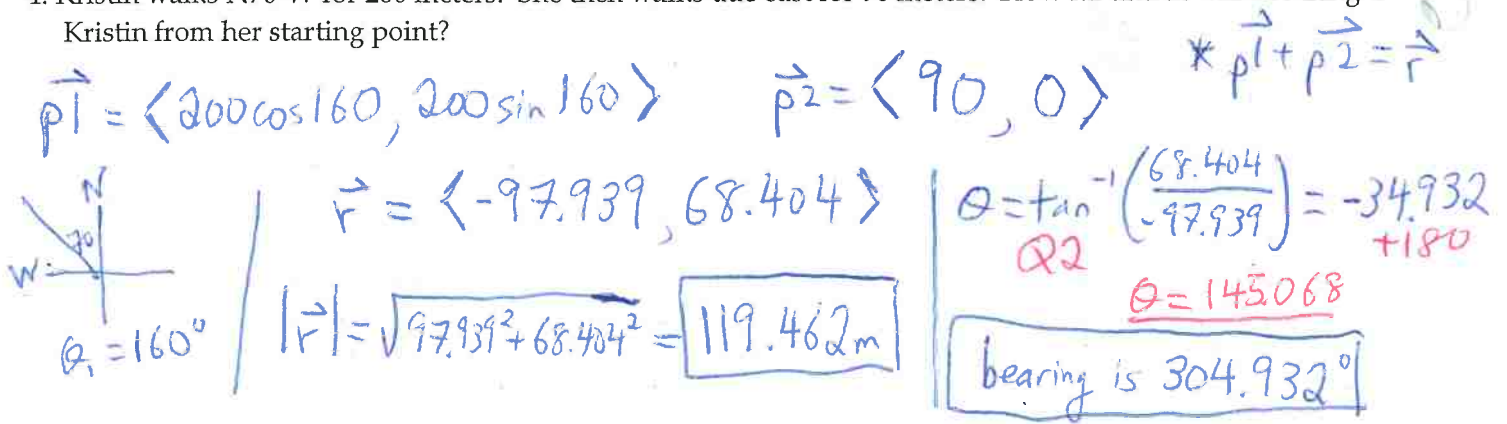 Kristin from her starting point?
* p1 + p2 = r
p1 = ⟨200cos160, 200sin160⟩
p2 = ⟨90, 0⟩
N
70
W
θ₁ = 160°
r = ⟨-97.939, 68.404⟩
|r| = √97.939² + 68.404² = 119.462m
θ = tan⁻¹(68.404/-97.939) = -34.932
Q2
+180
θ = 145.068
bearing is 304.932°